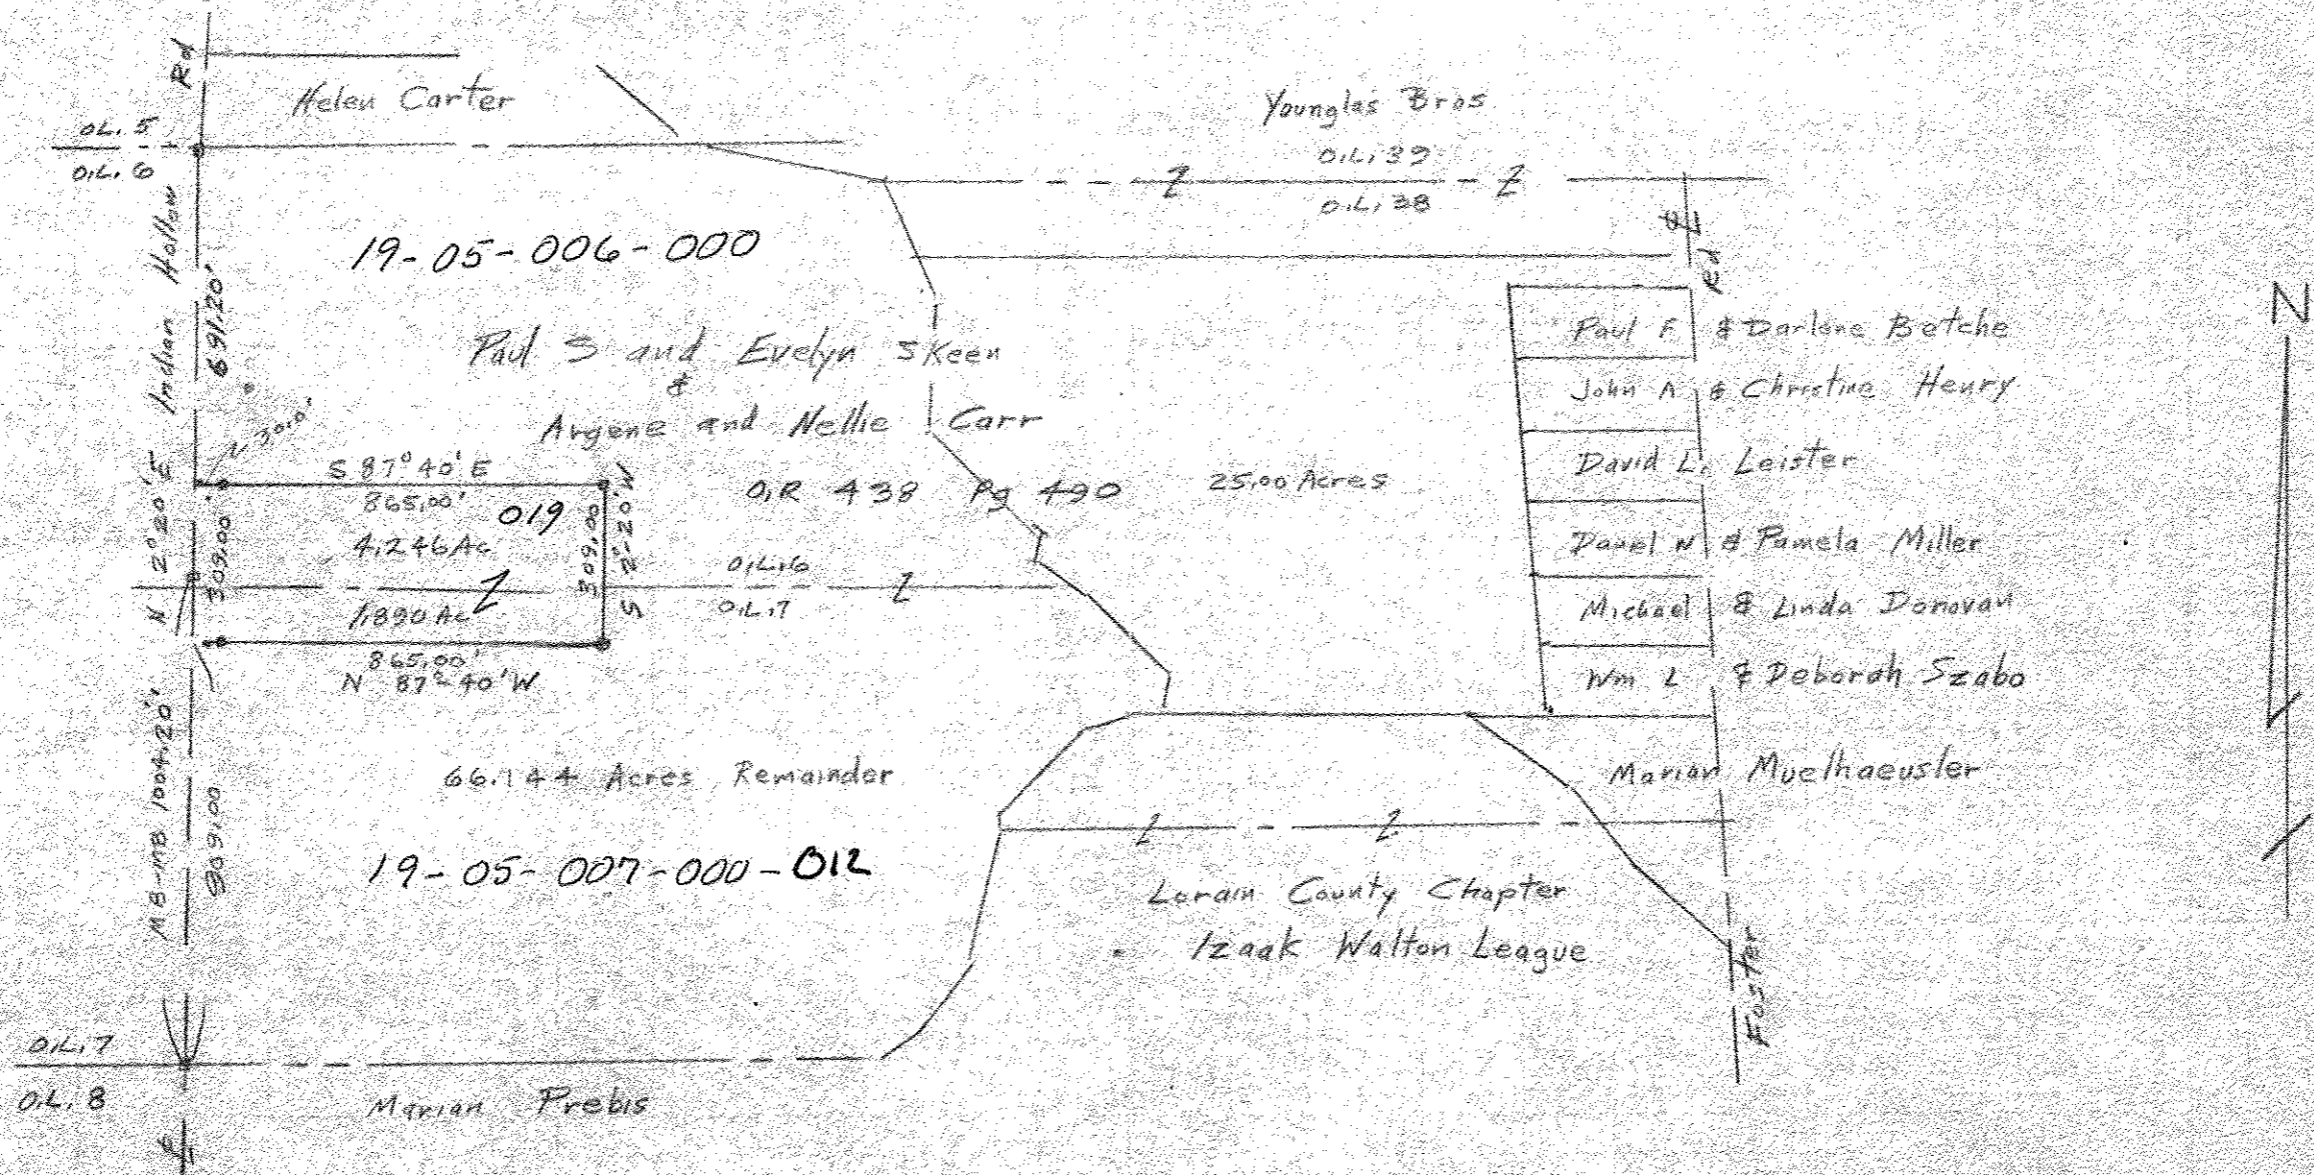 Rd
Helen Carter
Younglas Bros
O.L. 5
O.L. 6
O.L. 39
O.L. 38
Rd
19-05-006-000
N
Indian Hollow
691.20'
Paul S and Evelyn Skeen
&
Argene and Nellie Carr
Paul F & Darlene Betche
John A & Christine Henry
David L. Leister
Daniel N & Pamela Miller
Michael & Linda Donovan
Wm L & Deborah Szabo
30.0'
S 87° 40' E
865.00'
019
O.R 438 Pg 490
25.00 Acres
N 2° 20' E
309.00'
4.246 Ac
309.00
S 2°-20' W
O.L. 6
O.L. 7
1.890 Ac
865.00'
N 87°-40' W
MB-MB 1004.20'
66.144 Acres Remainder
Marian Muelhaeusler
809.00
19-05-007-000-012
Lorain County Chapter
Izaak Walton League
Foster
O.L. 7
O.L. 8
Marian Prebis